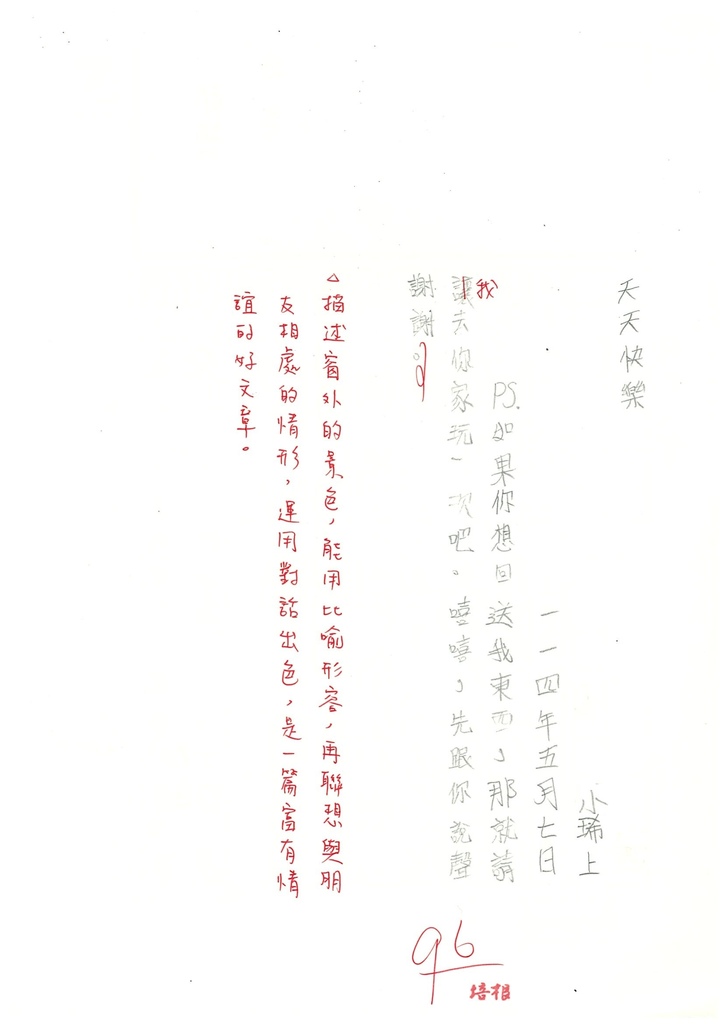 天天快樂
小琋上
一一四年五月七日
PS.如果你想回送我東西，那就請
我
讓去你家玩一次吧。嘻嘻，先跟你說聲
謝謝。
△描述窗外的景色，能用比喻形容，再聯想與朋
友相處的情形，運用對話出色，是一篇富有情
誼的好文章。
96
培根